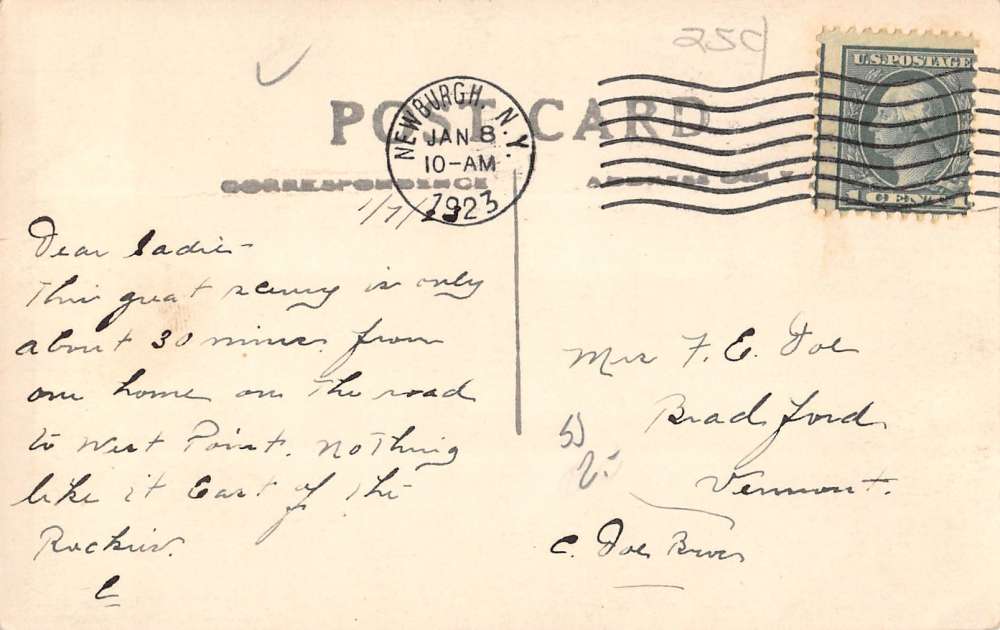 25c
POST CARD
NEWBURGH, N.Y.
JAN 8
10-AM
1923
U.S. POSTAGE
1 CENT 1
CORRESPONDENCE
ADDRESS ONLY
1/7/23
Dear Sadie-
This great scenery is only
about 30 mins. from
our home on the road
to West Point. Nothing
like it East of the
Rockies.
C
Mrs F. E. Doe
Bradford
Vermont.
c. Doe Bros